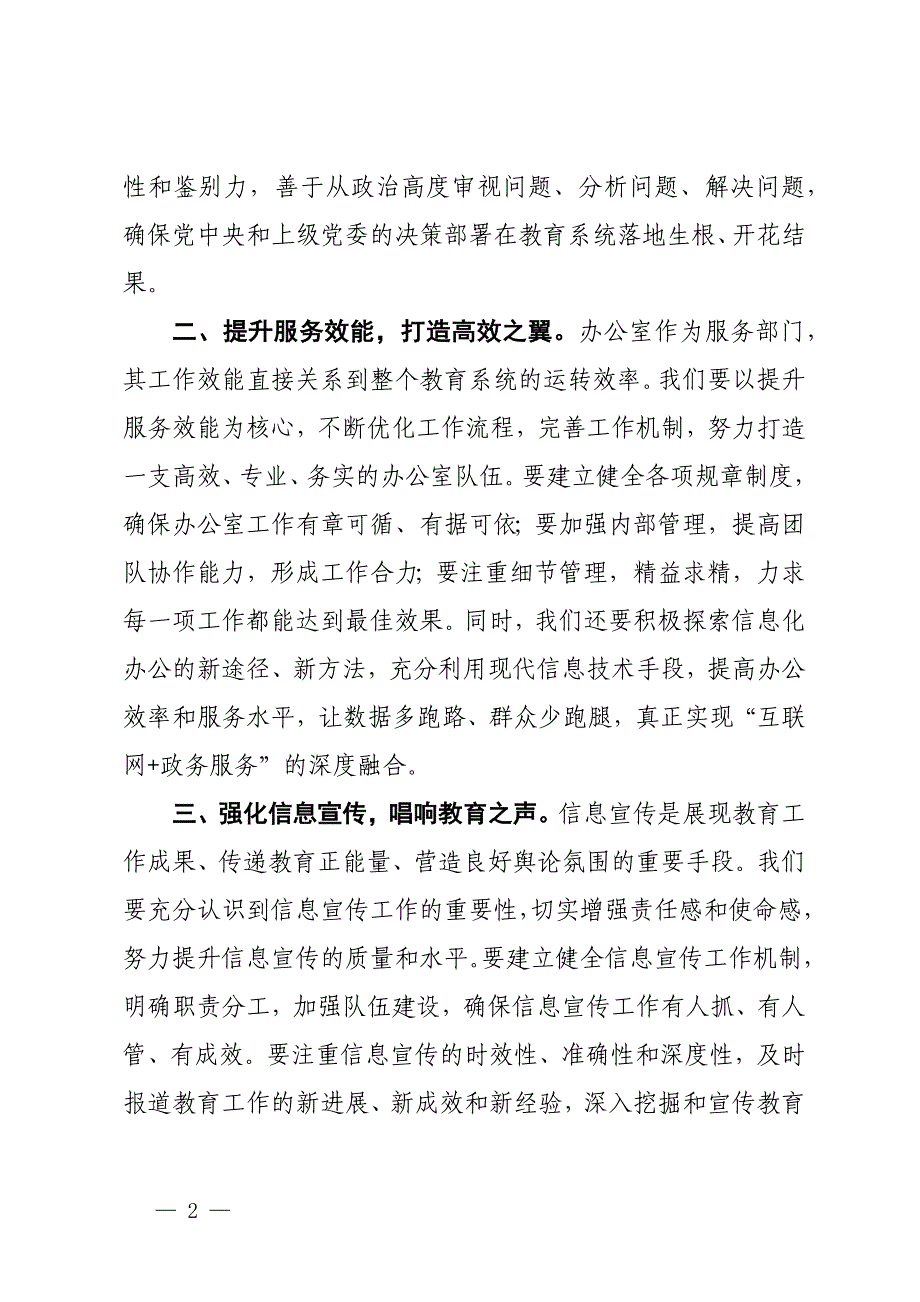 性和鉴别力，善于从政治高度审视问题、分析问题、解决问题，
确保党中央和上级党委的决策部署在教育系统落地生根、开花结
果。
二、提升服务效能，打造高效之翼。办公室作为服务部门，
其工作效能直接关系到整个教育系统的运转效率。我们要以提升
服务效能为核心，不断优化工作流程，完善工作机制，努力打造
一支高效、专业、务实的办公室队伍。要建立健全各项规章制度，
确保办公室工作有章可循、有据可依；要加强内部管理，提高团
队协作能力，形成工作合力；要注重细节管理，精益求精，力求
每一项工作都能达到最佳效果。同时，我们还要积极探索信息化
办公的新途径、新方法，充分利用现代信息技术手段，提高办公
效率和服务水平，让数据多跑路、群众少跑腿，真正实现“互联
网+政务服务”的深度融合。
三、强化信息宣传，唱响教育之声。信息宣传是展现教育工
作成果、传递教育正能量、营造良好舆论氛围的重要手段。我们
要充分认识到信息宣传工作的重要性，切实增强责任感和使命感，
努力提升信息宣传的质量和水平。要建立健全信息宣传工作机制，
明确职责分工，加强队伍建设，确保信息宣传工作有人抓、有人
管、有成效。要注重信息宣传的时效性、准确性和深度性，及时
报道教育工作的新进展、新成效和新经验，深入挖掘和宣传教育
— 2 —